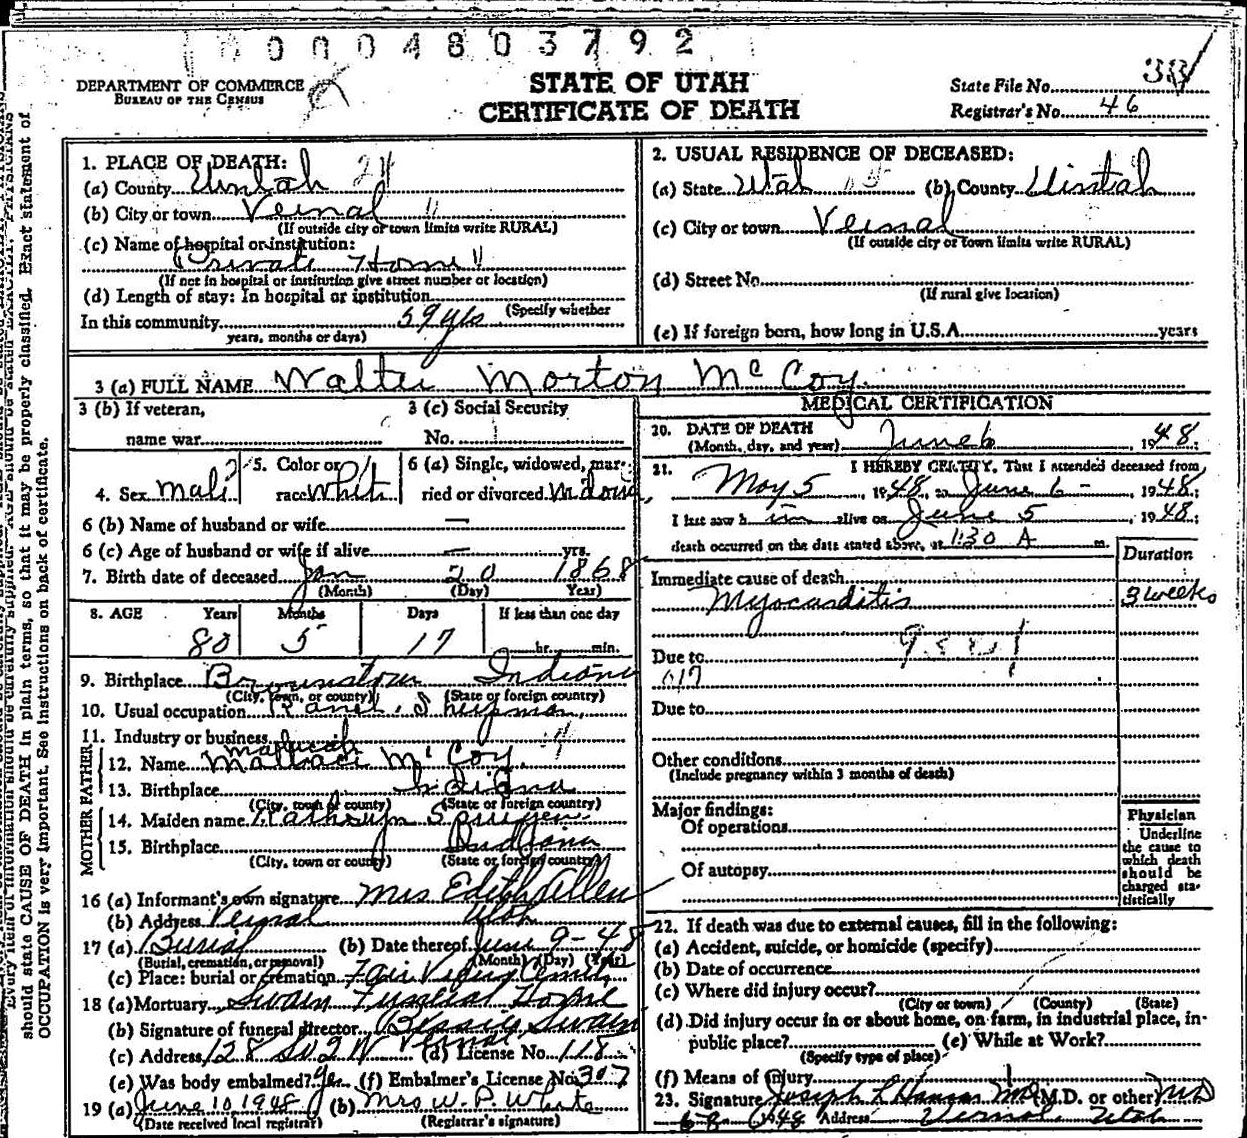 0004803792
DEPARTMENT OF COMMERCE
BUREAU OF THE CENSUS
STATE OF UTAH
CERTIFICATE OF DEATH
State File No.
Registrar's No. 46
1. PLACE OF DEATH:
(a) County Uintah 24
(b) City or town Vernal
(If outside city or town limits write RURAL)
(c) Name of hospital or institution:
Private Home
(If not in hospital or institution give street number or location)
(d) Length of stay: In hospital or institution
(Specify whether
In this community 59 yrs
years, months or days)
2. USUAL RESIDENCE OF DECEASED:
(a) State Utah (b) County Uintah
(c) City or town Vernal
(If outside city or town limits write RURAL)
(d) Street No.
(If rural give location)
(e) If foreign born, how long in U.S.A. years
3 (a) FULL NAME Walter Morton McCoy
3 (b) If veteran, 3 (c) Social Security
name war No.
4. Sex Male 5. Color or race White 6 (a) Single, widowed, married or divorced
6 (b) Name of husband or wife —
6 (c) Age of husband or wife if alive — yrs.
7. Birth date of deceased Jan 20 1868
(Month) (Day) Year)
8. AGE Years Months Days If less than one day
80 5 17 hr. min.
9. Birthplace Brownstown Indiana
(City, town, or county) (State or foreign country)
10. Usual occupation
11. Industry or business
FATHER
12. Name McCoy
13. Birthplace Indiana
(City, town or county) (State or foreign country)
MOTHER
14. Maiden name
15. Birthplace Indiana
(City, town or county) (State or foreign country)
16 (a) Informant's own signature Mrs Edith Allen
(b) Address Vernal Utah
17 (a) Burial (b) Date thereof June 9-48
(Burial, cremation, or removal) (Month) (Day) (Year)
(c) Place: burial or cremation
18 (a) Mortuary Swain Funeral Home
(b) Signature of funeral director Bessie Swain
(c) Address 128 So 2 W Vernal (d) License No. 118
(e) Was body embalmed? Yes (f) Embalmer's License No. 307
19 (a) June 10, 1948 (b) Mrs W. P. White
(Date received local registrar) (Registrar's signature)
MEDICAL CERTIFICATION
20. DATE OF DEATH
(Month, day, and year) June 6 1948;
21. I HEREBY CERTIFY, That I attended deceased from
May 5, 1948, to June 6 - , 1948;
I last saw him alive on June 5, 1948;
death occurred on the date stated above, at 1:30 A m.
Duration
Immediate cause of death
Myocarditis 3 weeks
Due to
Due to
Other conditions
(Include pregnancy within 3 months of death)
Major findings:
Of operations
Of autopsy
Physician
Underline
the cause to
which death
should be
charged sta-
tistically
22. If death was due to external causes, fill in the following:
(a) Accident, suicide, or homicide (specify)
(b) Date of occurrence
(c) Where did injury occur?
(City or town) (County) (State)
(d) Did injury occur in or about home, on farm, in industrial place, in-
public place? (e) While at Work?
(Specify type of place)
(f) Means of Injury
23. Signature Joseph L Hansen MD (M.D. or other) MD
Address Vernal Utah
should state CAUSE OF DEATH in plain terms, so that it may be properly classified. Exact statement of
OCCUPATION is very important. See instructions on back of certificate.